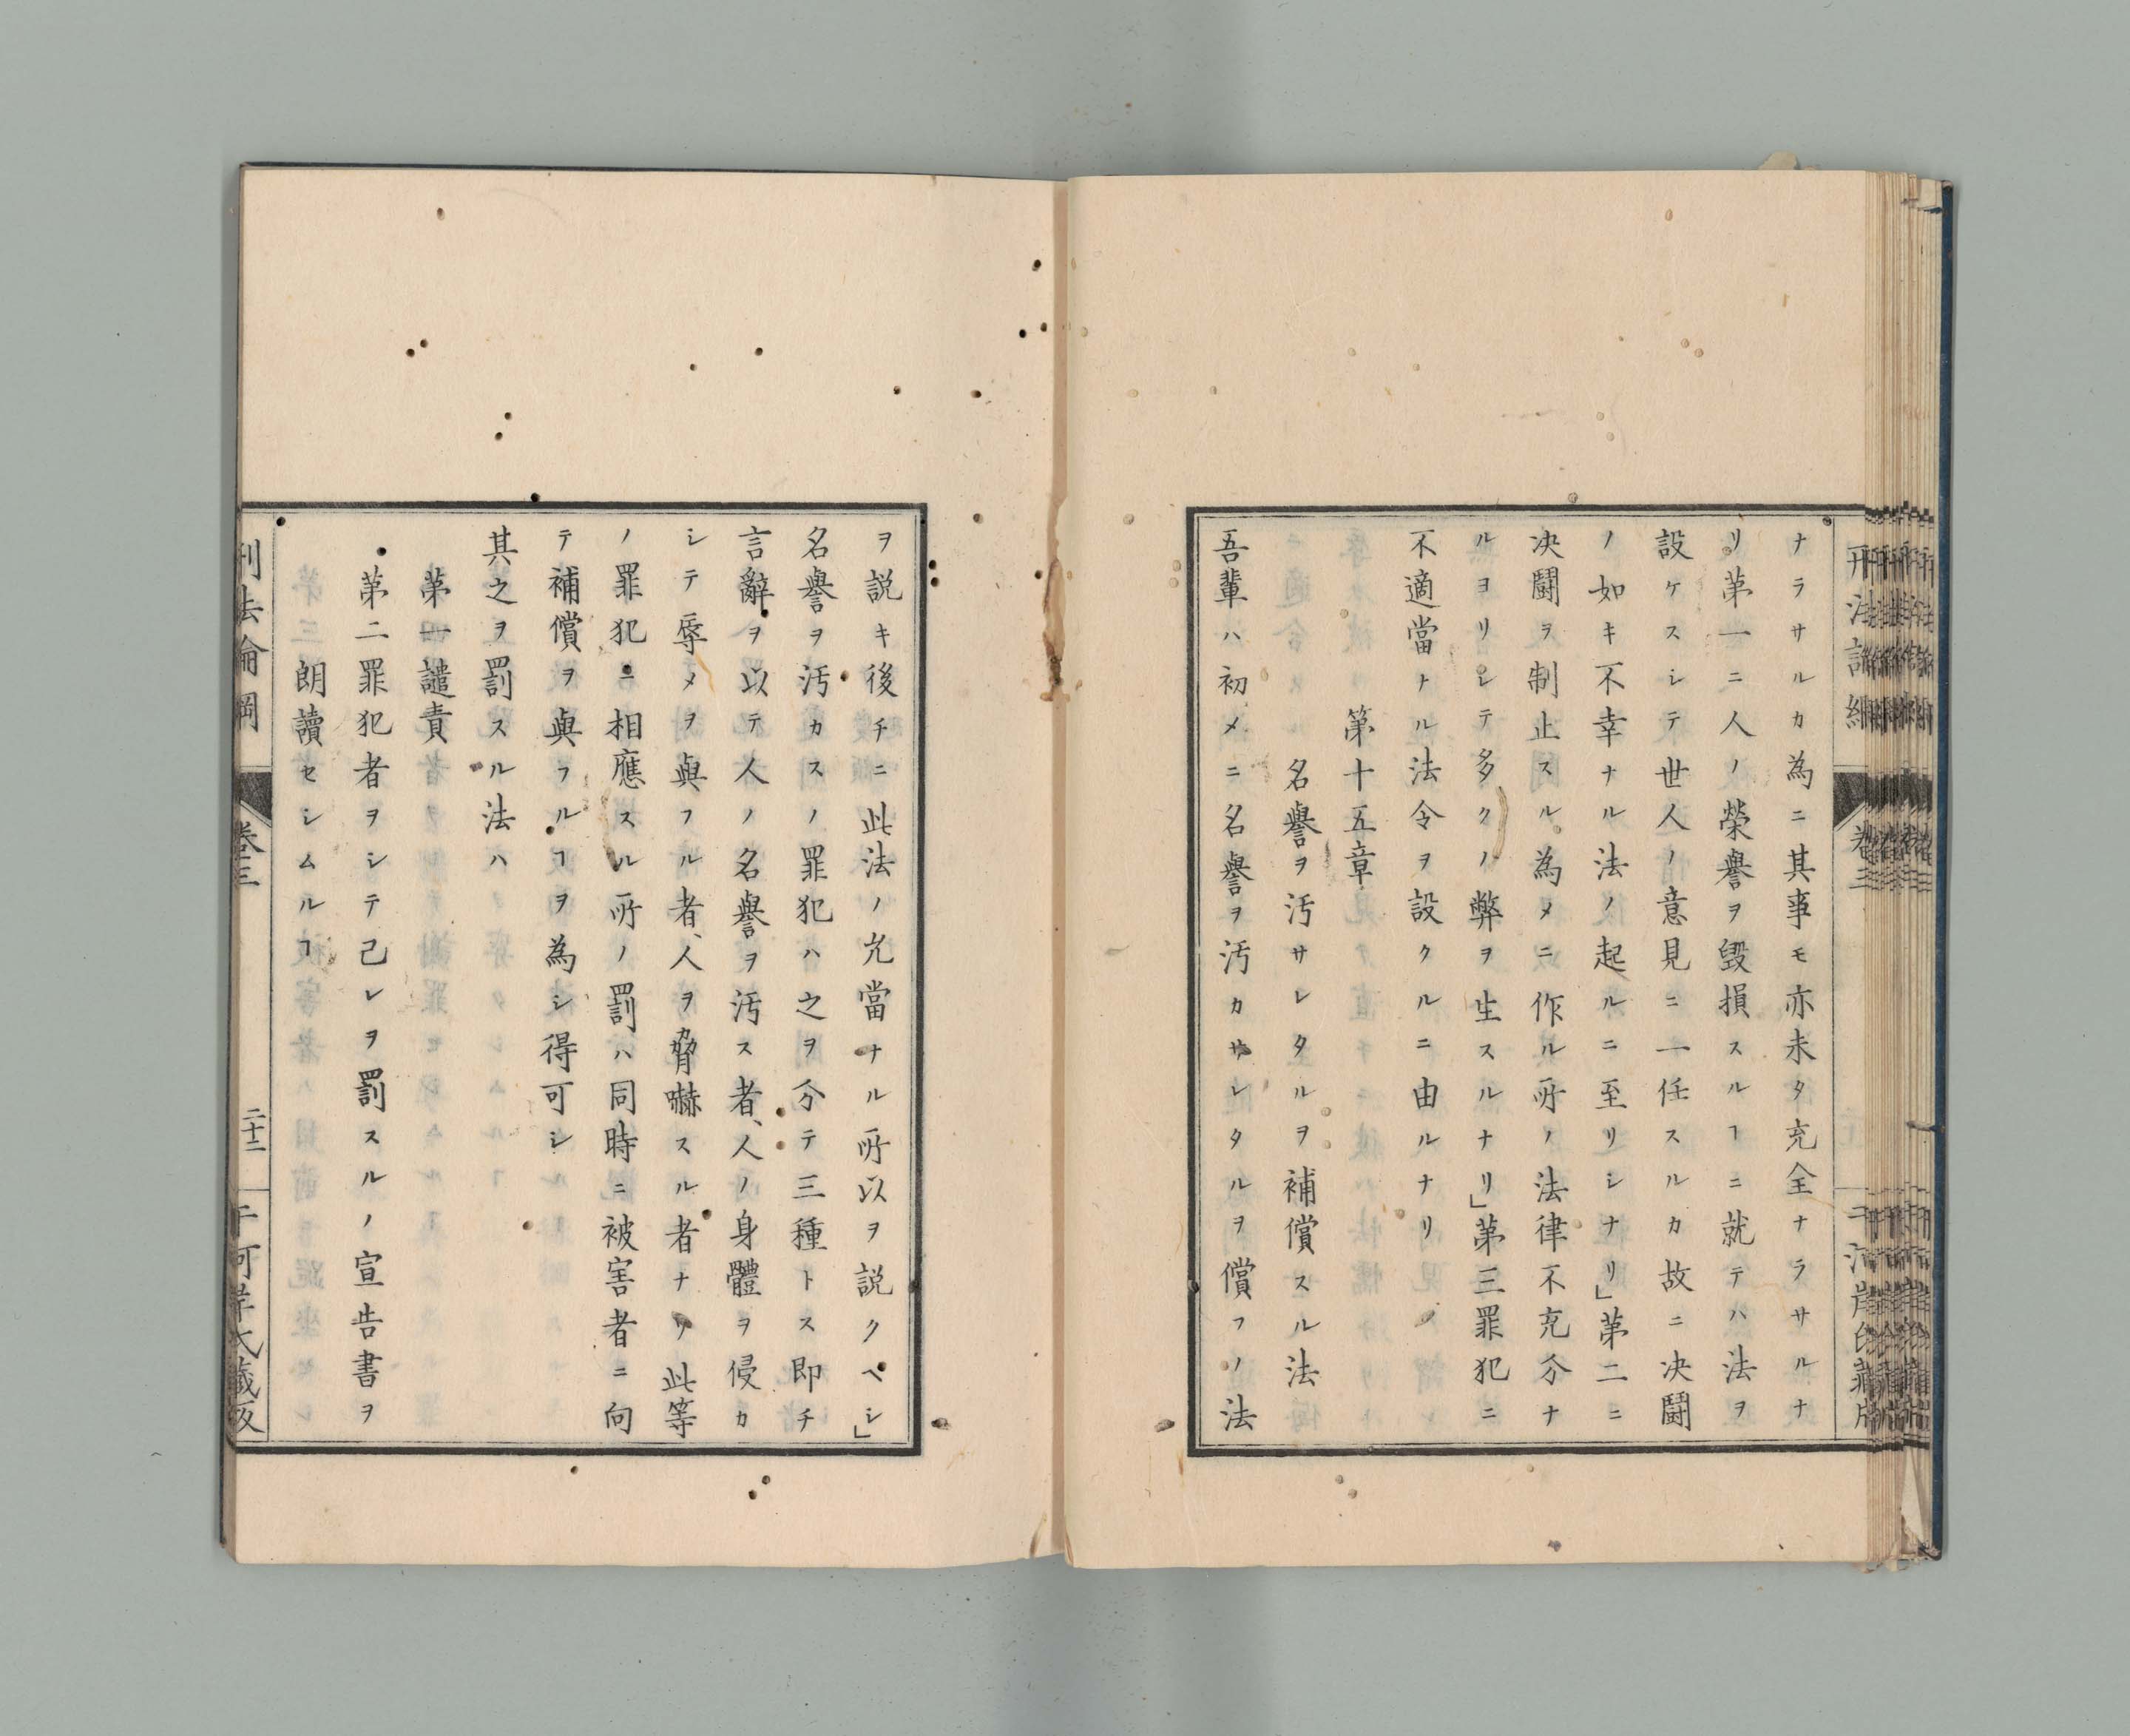 ナラサルカ為ニ其事モ亦未タ充全ナラサルナ
リ第一ニ人ノ榮譽ヲ毀損スルヿニ就テハ法ヲ
設ケスシテ世人ノ意見ニ一任スルカ故ニ决鬪
ノ如キ不幸ナル法ノ起ルニ至リシナリ」第二ニ
决鬪ヲ制止スル為メニ作ル所ノ法律不充分ナ
ルヨリシテ多クノ弊ヲ生スルナリ」第三罪犯ニ
不適當トル法令ヲ設クルニ由ルナリ
第十五章
名譽ヲ汚サレタルヲ補償スル法
吾輩ハ初メニ名譽ヲ汚カサレタルヲ償フノ法
ヲ説キ後チニ此法ノ允當ナル所以ヲ説クベシ」
名譽ヲ汚カスノ罪犯ハ之ヲ分テ三種トス即チ
言辭ヲ以テ人ノ名譽ヲ汚ス者、人ノ身體ヲ侵カ
シテ辱メヲ與フル者、人ヲ脅嚇スル者ナリ此等
ノ罪犯ニ相應スル所ノ罰ハ同時ニ被害者ニ向
テ補償ヲ與フルヿヲ為シ得可シ
其之ヲ罰スル法ハ
第一譴責
第二罪犯者ヲシテ己レヲ罰スルノ宣告書ヲ
朗讀セシムルヿ
刑法論綱
卷三
二十二